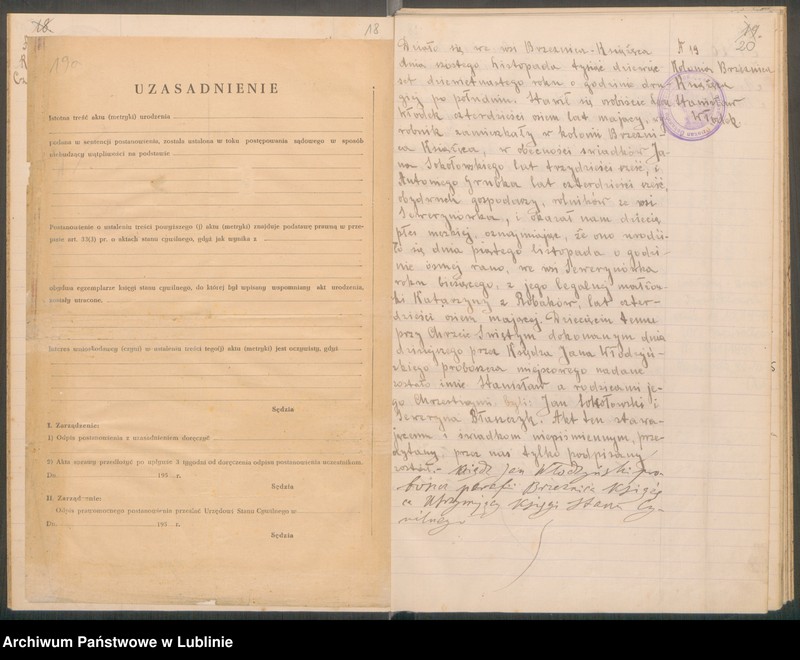 18
18
UZASADNIENIE
Istotna treść aktu (metryki) urodzenia
podana w sentencji postanowienia, została ustalona w toku postępowania sądowego w sposób
niebudzący wątpliwości na podstawie
Postanowienie o ustaleniu treści powyższego (j) aktu (metryki) znajduje podstawę prawną w prze-
pisie art. 33(2) pr. o aktach stanu cywilnego, gdyż jak wynika z
obydwa egzemplarze księgi stanu cywilnego, do której był wpisany wspomniany akt urodzenia,
zostały utracone.
Interes wnioskodawcy (czyni) w ustaleniu treści tego(j) aktu (metryki) jest oczywisty, gdyż
Sędzia
I. Zarządzenie:
1) Odpis postanowienia z uzasadnieniem doręczyć
2) Akta sprawy przedłożyć po upływie 3 tygodni od doręczenia odpisu postanowienia uczestnikom.
Dn. 195 r.
Sędzia
II. Zarządzenie:
Odpis prawomocnego postanowienia przesłać Urzędowi Stanu Cywilnego w
Dn. 195 r.
Sędzia
20
N 19
Kolonia Brzeźnica
Książęca
Stanisław
Włodek
Działo się we wsi Brzeźnica-Książęca
dnia szóstego Listopada tysiąc dziewięć
set dziewiętnastego roku o godzinie dru
giej po południu. Stawił się osobiście
Włodek czterdzieści osiem lat mający, wy
robnik zamieszkały w kolonii Brzeźni-
ca Książęca, w obecności świadków Ja-
na Sokołowskiego lat trzydzieści sześć, i
Antoniego Grubka lat czterdzieści sześć,
obydwóch gospodarzy, rolników ze wsi
Sewerynówka, i okazał nam dziecię
płci męzkiej, oznajmiając, że ono urodzi-
ło się dnia piątego Listopada o godzi-
nie ósmej rano, we wsi Sewerynówka
roku bieżącego, z jego legalnej małżon-
ki Katarzyny z Robaków, lat czter-
dzieści osiem mającej. Dziecięciu temu
przy Chrzcie Świętym dokonanym dnia
dzisiejszego przez Księdza Jana Włodzyń-
skiego proboszcza miejscowego nadane
zostało imię Stanisław a rodzicami je-
go Chrzestnymi byli: Jan Sokołowski i
Seweryna Błanczyk. Akt ten stawa-
jącemu i świadkom niepiśmiennym, prze-
czytany przez nas tylko podpisany
został. - Ksiądz Jan Włodzyński pro-
boszcz parafii Brzeźnica Książę
ca Utrzymujący Księgi Stanu Cy-
wilnego
Archiwum Państwowe w Lublinie